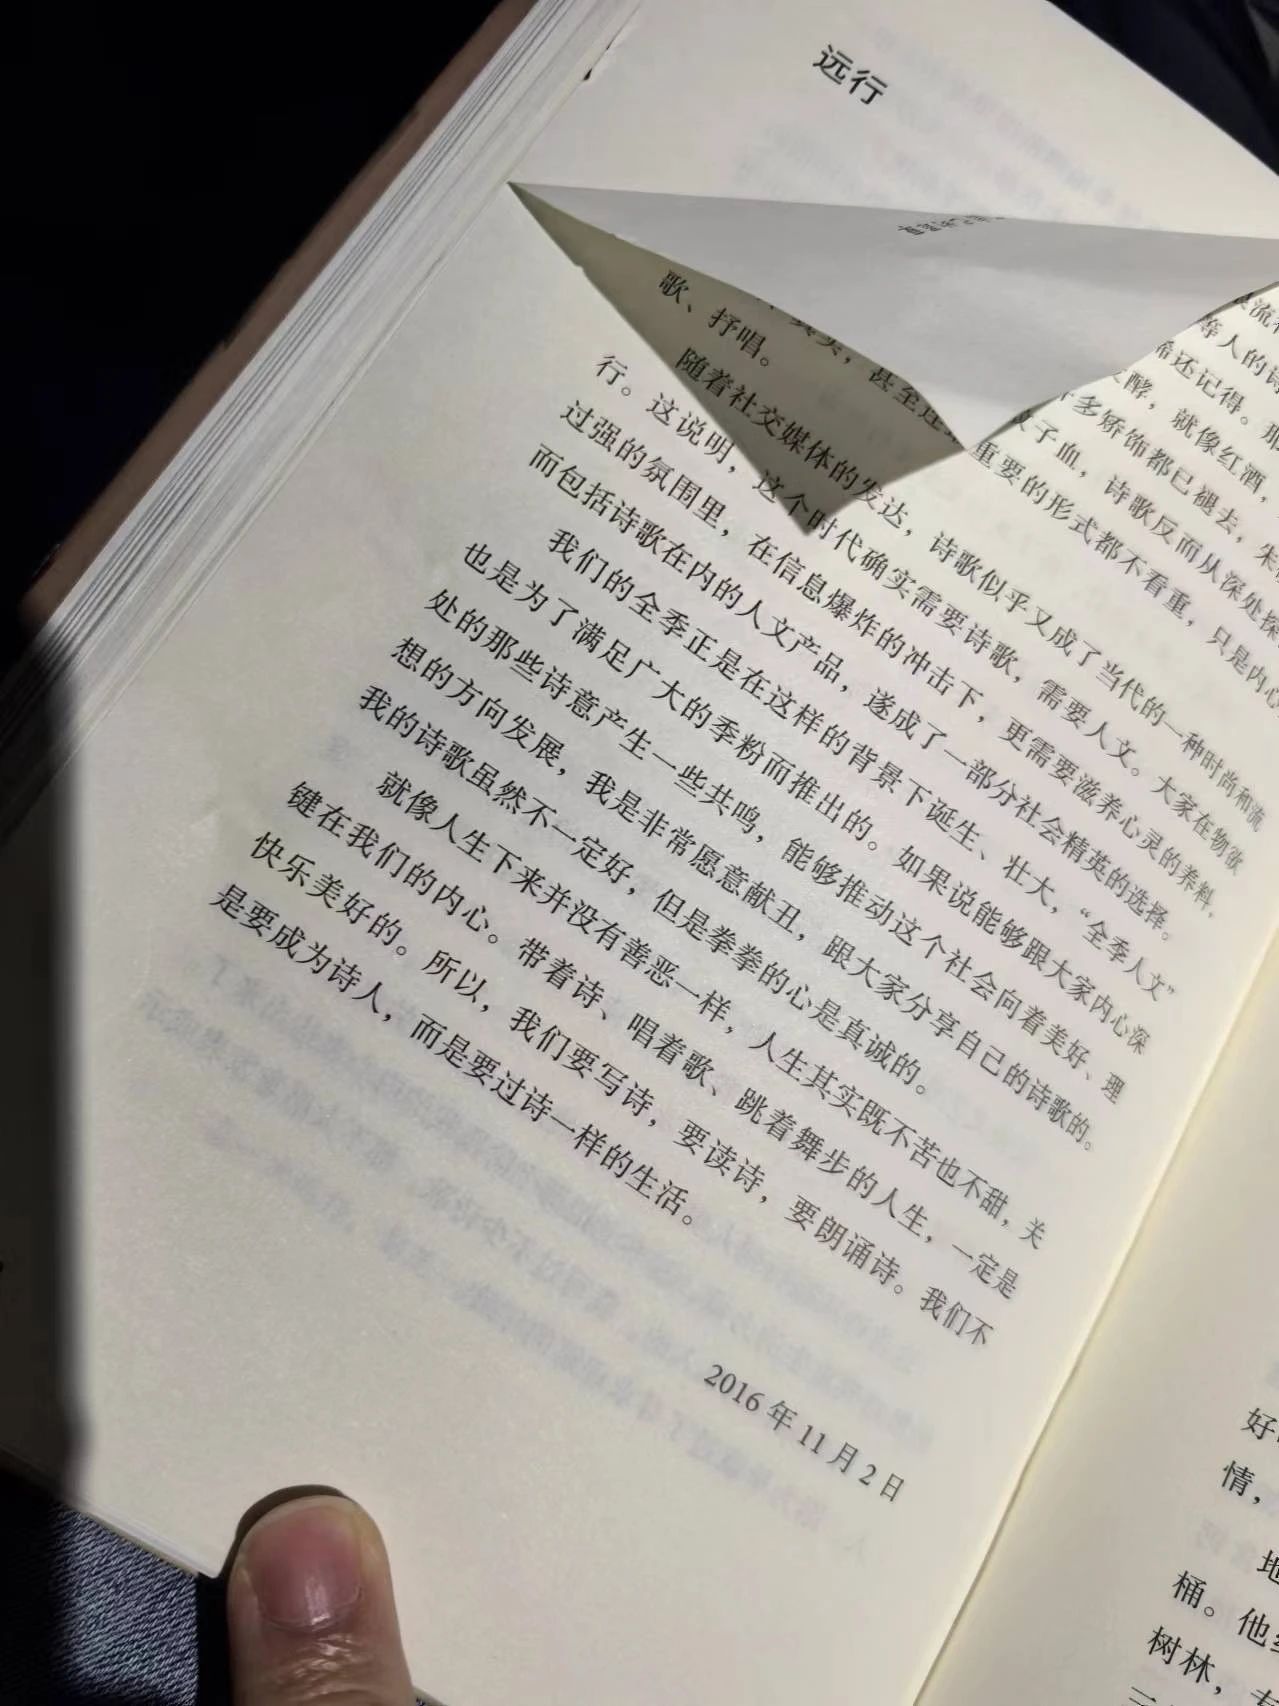 远行
流
等人的诗
还记得。那
酵，就像红酒，
多矫饰都已褪去，朱
子血，诗歌反而从深处探
重要的形式都不看重，只是内心
真实，甚至连
歌、抒唱。
随着社交媒体的发达，诗歌似乎又成了当代的一种时尚和流
行。这说明，这个时代确实需要诗歌，需要人文。大家在物欲
过强的氛围里，在信息爆炸的冲击下，更需要滋养心灵的养料，
而包括诗歌在内的人文产品，遂成了一部分社会精英的选择。
我们的全季正是在这样的背景下诞生、壮大，“全季人文”
也是为了满足广大的季粉而推出的。如果说能够跟大家内心深
处的那些诗意产生一些共鸣，能够推动这个社会向着美好、理
想的方向发展，我是非常愿意献丑，跟大家分享自己的诗歌的。
我的诗歌虽然不一定好，但是拳拳的心是真诚的。
就像人生下来并没有善恶一样，人生其实既不苦也不甜，关
键在我们的内心。带着诗、唱着歌、跳着舞步的人生，一定是
快乐美好的。所以，我们要写诗，要读诗，要朗诵诗。我们不
是要成为诗人，而是要过诗一样的生活。
2016 年 11 月 2 日
好
情，
地
桶。他
树林，